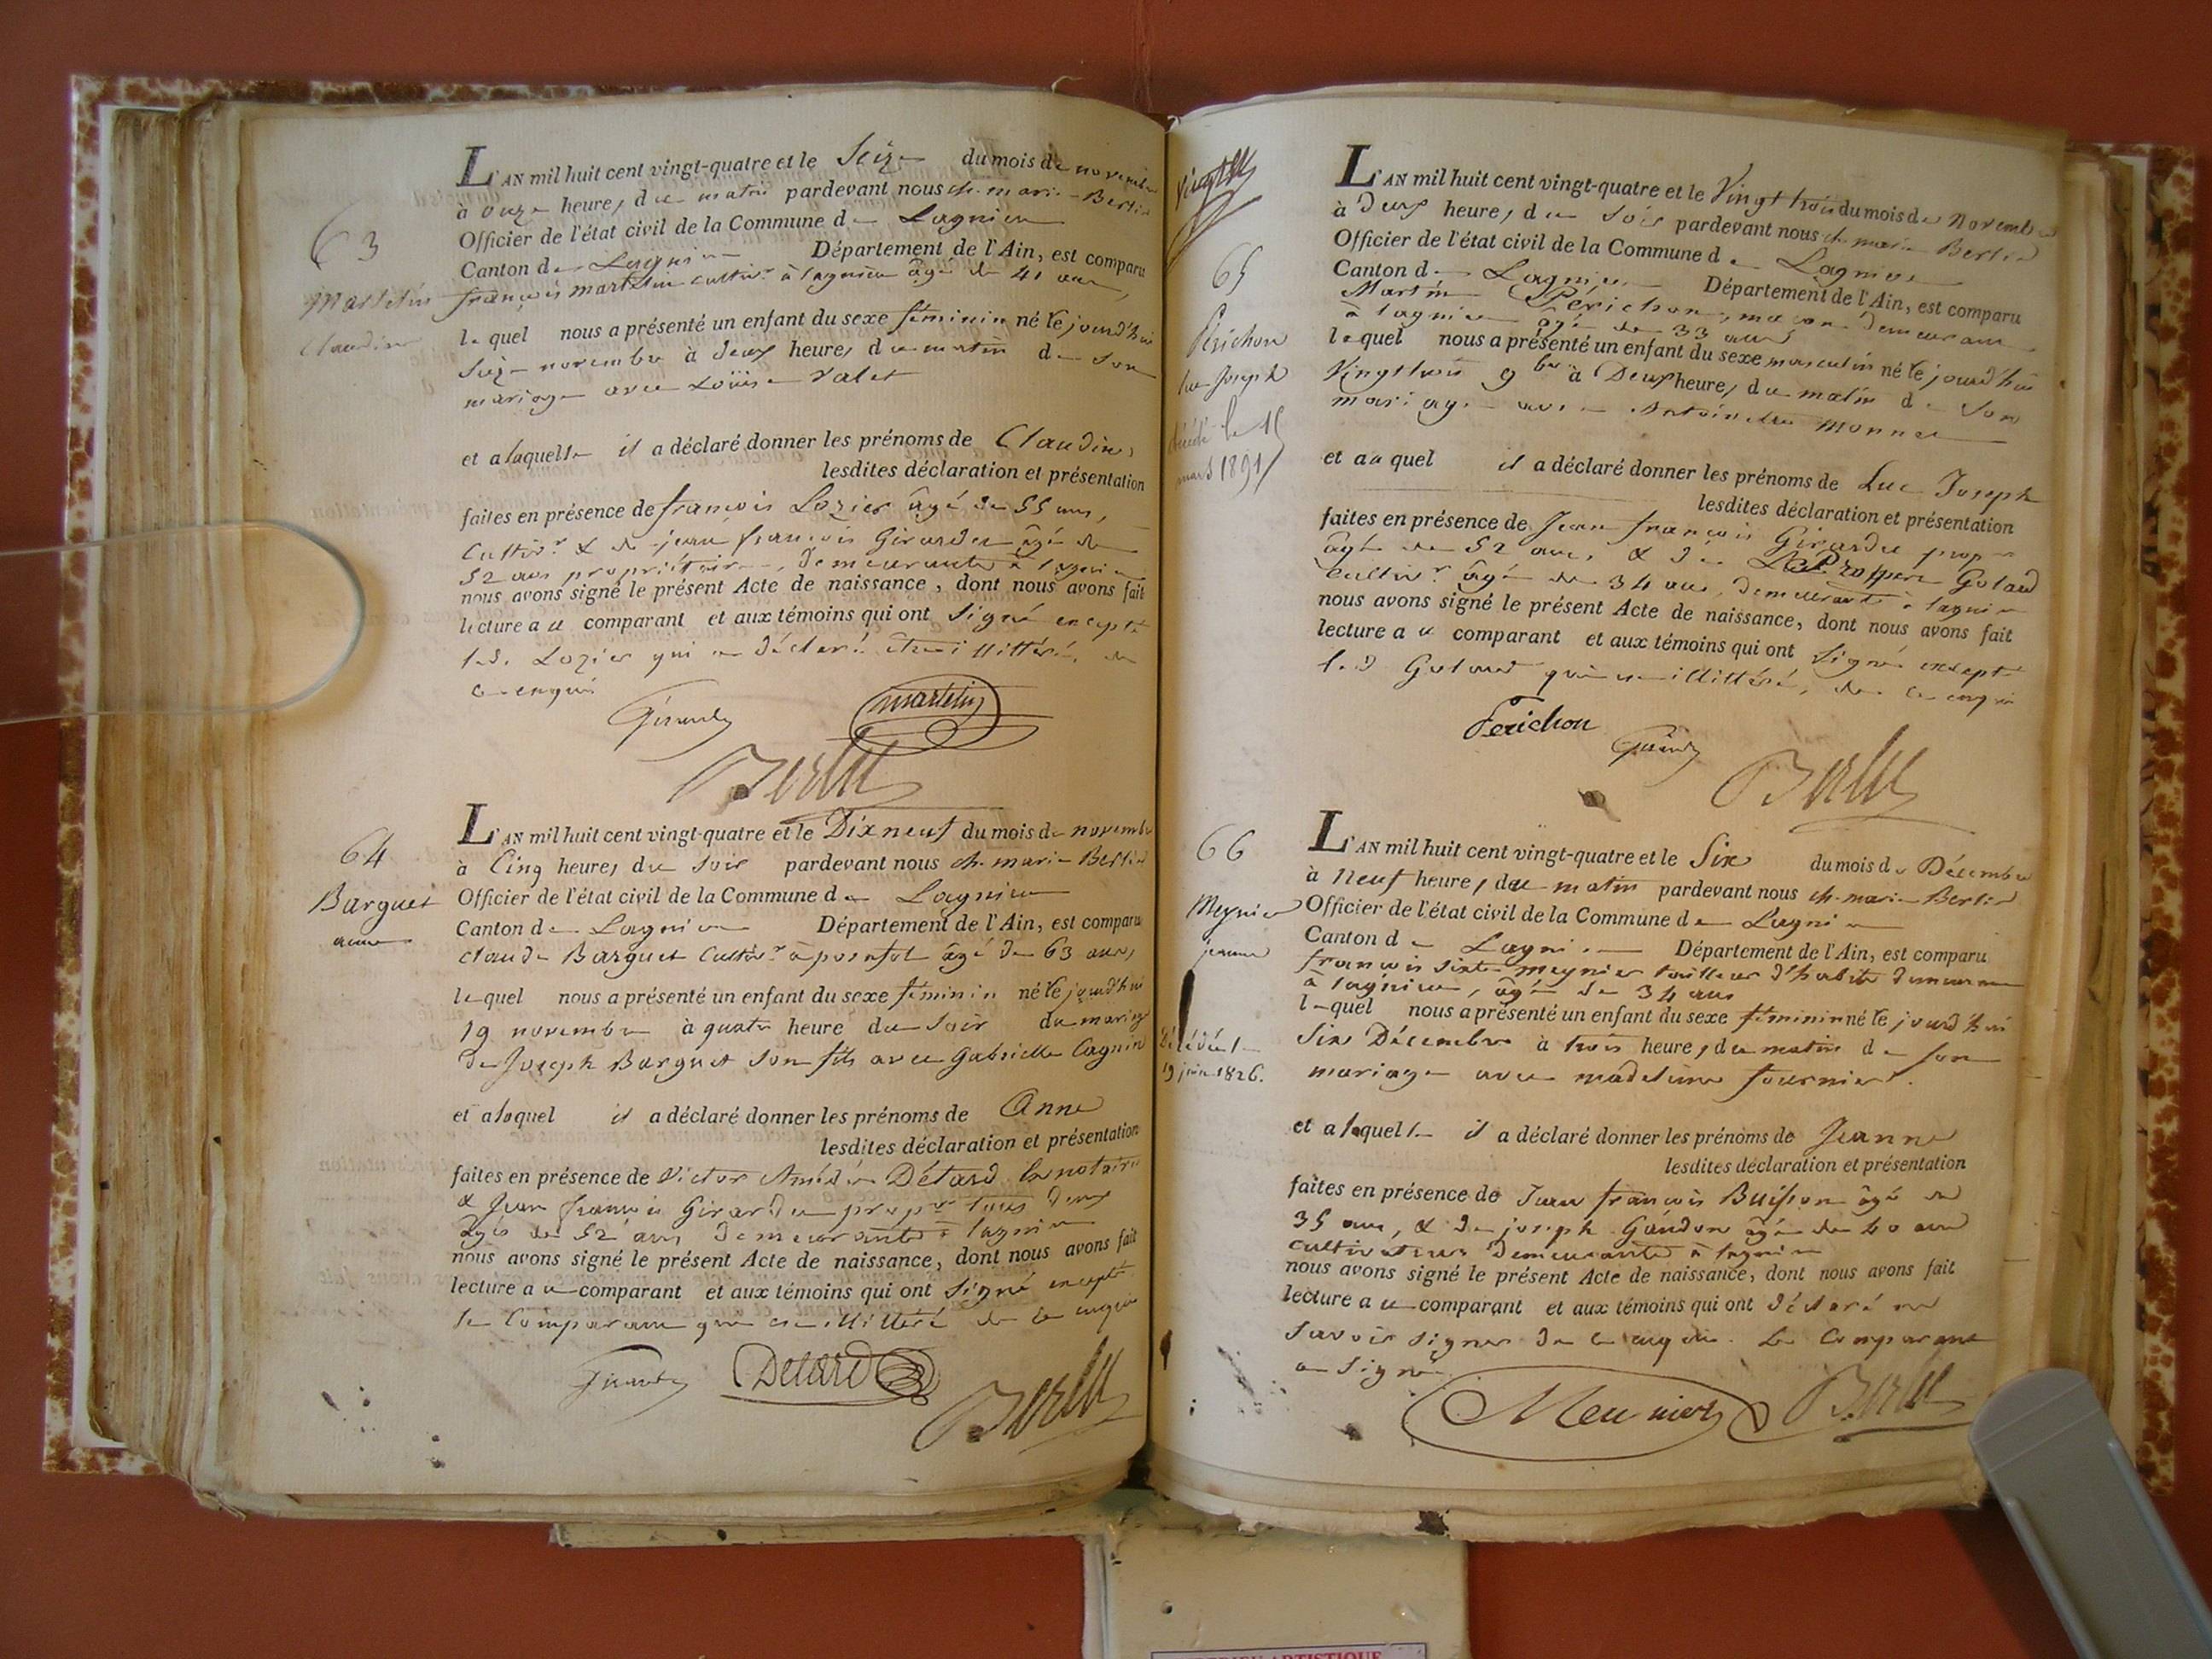 63
Martelin
Claudine
L'AN mil huit cent vingt-quatre et le Seize du mois de novembre
à onze heures du matin pardevant nous ch. marie Berlie
Officier de l'état civil de la Commune de Lagnieu
Canton de Lagnieu Département de l'Ain, est comparu
françois martelin cultivr à lagnieu âgé de 41 ans,
lequel nous a présenté un enfant du sexe féminin né le jourd'hui
Seize novembre à deux heures du matin de Son
mariage avec Loüise Valet
et a laquelle il a déclaré donner les prénoms de Claudine,
lesdites déclaration et présentation
faites en présence de françois Lozier âgé de 55 ans,
Cultivr & de jean françois Girardet âgé de
52 ans propriétaire, demeurants à lagnieu
nous avons signé le présent Acte de naissance, dont nous avons fait
lecture au comparant et aux témoins qui ont Signé excepté
led. Lozier qui a déclaré être illittéré, de
ce enquis
martelin
64
Barguet
anne
L'AN mil huit cent vingt-quatre et le Dix neuf du mois de novembre
à Cinq heures du Soir pardevant nous ch. marie Berlie
Officier de l'état civil de la Commune de Lagnieu
Canton de Lagnieu Département de l'Ain, est comparu
claude Barguet Cultivr à âgé de 63 ans,
lequel nous a présenté un enfant du sexe féminin né le jourd'hui
19 novembre à quatre heure du Soir du mariage
de Joseph Barguet Son fils avec Gabrielle Cagnin
et a laquel il a déclaré donner les prénoms de Anne
lesdites déclaration et présentation
faites en présence de Victor Amédée Détard notaire
& Jean françois Girardet propr tous deux
âgés de 52 ans demeurants à lagnieu
nous avons signé le présent Acte de naissance, dont nous avons fait
lecture au comparant et aux témoins qui ont Signé excepté
le Comparant qui est illittéré de ce enquis
Detard
65
Périchon
luc Joseph
décédé le 15
mars 1891
L'AN mil huit cent vingt-quatre et le Vingt trois du mois de Novembre
à Deux heures du Soir pardevant nous ch. marie Berlie
Officier de l'état civil de la Commune de Lagnieu
Canton de Lagnieu Département de l'Ain, est comparu
Martin Périchon, maçon demeurant
à lagnieu âgé de 33 ans
lequel nous a présenté un enfant du sexe masculin né le jourd'hui
Vingt trois 9bre à Deux heures du matin de Son
mariage avec Antoinette Monnet
et au quel il a déclaré donner les prénoms de Luc Joseph
lesdites déclaration et présentation
faites en présence de Jean françois Girardet propre
âgé de 52 ans, & de Prosper Golaud
Cultivr âgé de 34 ans, demeurants à lagnieu
nous avons signé le présent Acte de naissance, dont nous avons fait
lecture au comparant et aux témoins qui ont Signé excepté
led Golaud qui est illittéré, de ce enquis
Perichon
66
Meynier
jeanne
Décédée le
19 juin 1826.
L'AN mil huit cent vingt-quatre et le Six du mois de Décembre
à Neuf heures du matin pardevant nous ch. marie Berlie
Officier de l'état civil de la Commune de Lagnieu
Canton de Lagnieu Département de l'Ain, est comparu
françois Sixte meynier tailleur d'habits demeurant
à lagnieu, âgé de 34 ans
lequel nous a présenté un enfant du sexe féminin né le jourd'hui
Six Décembre à trois heures du matin de Son
mariage avec madeleine fournier.
et a laquelle il a déclaré donner les prénoms de Jeanne
lesdites déclaration et présentation
faites en présence de Jean françois Buisson âgé de
35 ans, & de joseph Gandon âgé de 40 ans
cultivateurs demeurants à lagnieu
nous avons signé le présent Acte de naissance, dont nous avons fait
lecture au comparant et aux témoins qui ont déclaré ne
Savoir Signer de ce enquis. Le Comparant
a Signé
Meunier